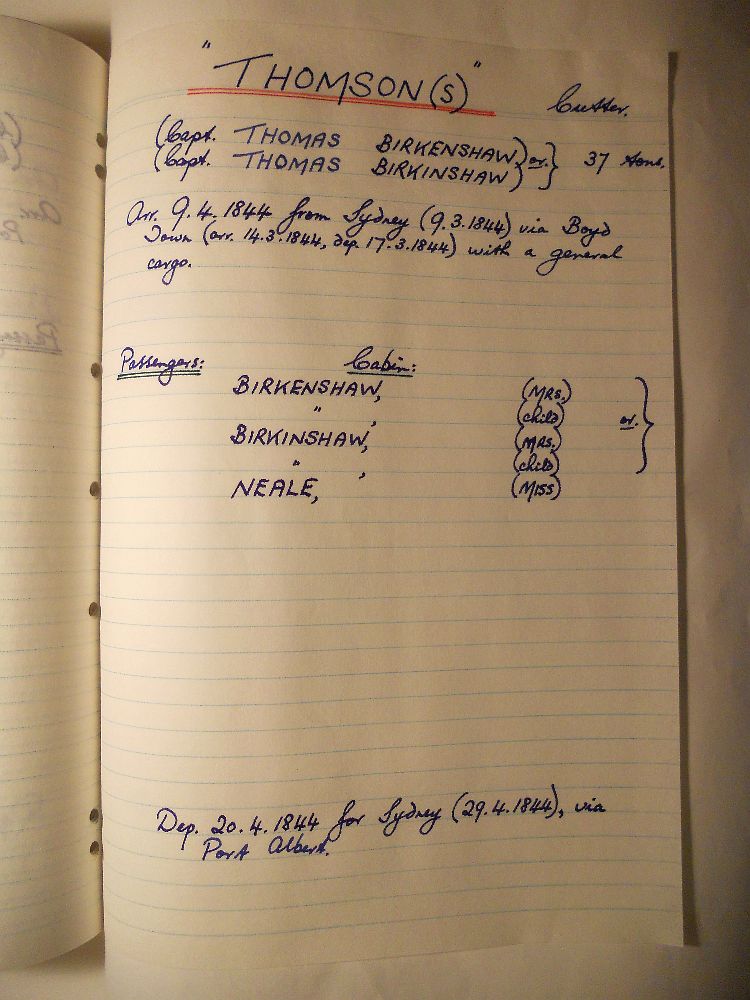 "THOMSON(S)" Cutter.
(Capt. THOMAS BIRKENSHAW) or } 37 tons.
(Capt. THOMAS BIRKINSHAW)
Arr. 9.4.1844 from Sydney (9.3.1844) via Boyd
Town (arr. 14.3.1844, dep. 17.3.1844) with a general
cargo.
Passengers: Cabin:
BIRKENSHAW, (MRS.)
" , (child)
BIRKINSHAW, (MRS.) or. }
" , (child)
NEALE, (MISS)
Dep. 20.4.1844 for Sydney (29.4.1844), via
Port Albert.